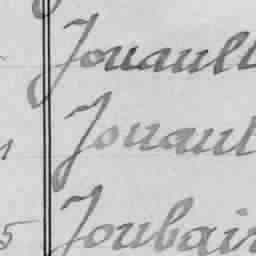 Jouault
Jouault
5 Joubair